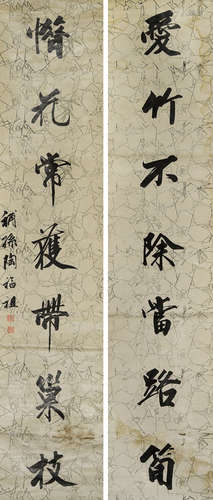 愛竹不除當路筍
惜花常護帶巢枝
輞孫陶福祖